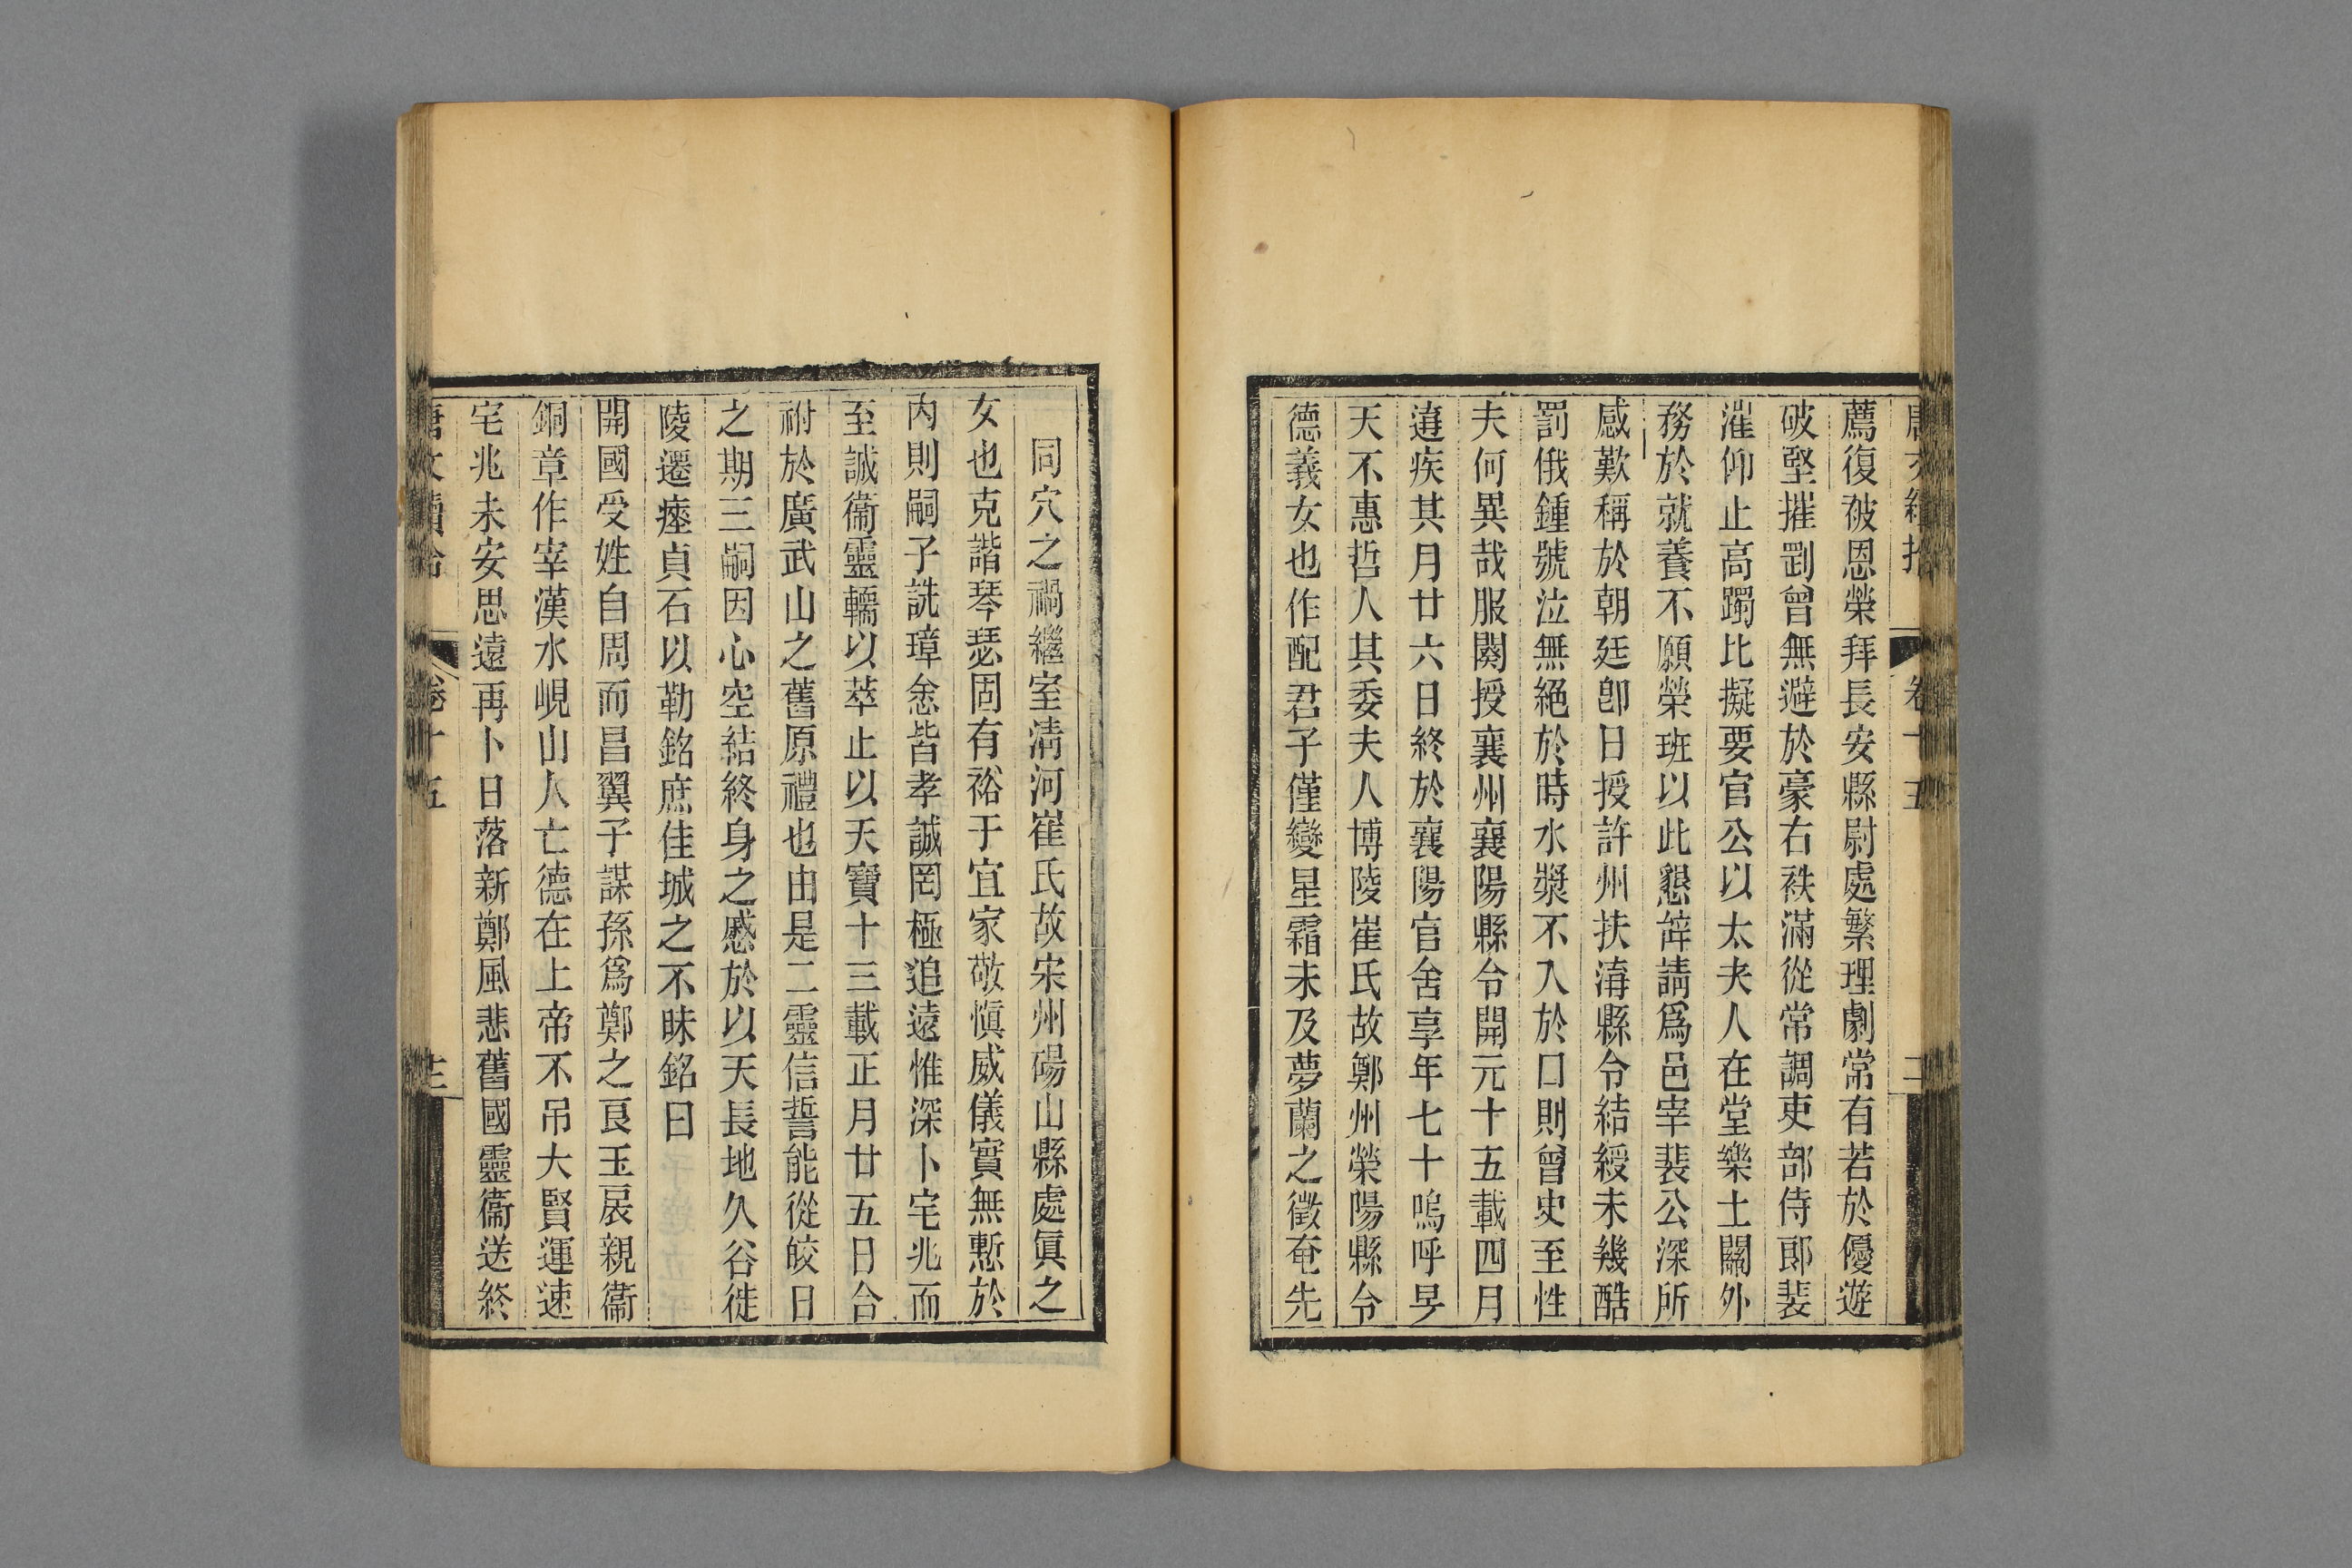 薦復被恩榮拜長安縣尉處繁理劇常有若於優遊
破堅摧剛曾無避於豪右秩滿從常調吏部侍郎裴
漼仰止高躅比擬要官公以太夫人在堂樂土關外
務於就養不願榮班以此懇辭請爲邑宰裴公深所
感歎稱於朝廷卽日授許州扶溝縣令結綬未幾酷
罰俄鍾號泣無絕於時水漿不入於口則曾史至性
夫何異哉服闋授襄州襄陽縣令開元十五載四月
遘疾其月廿六日終於襄陽官舍享年七十嗚呼旻
天不惠哲人其委夫人博陵崔氏故鄭州榮陽縣令
德義女也作配君子僅變星霜未及夢蘭之徵奄先
同穴之禍繼室淸河崔氏故宋州碭山縣處眞之
女也克諧琴瑟固有裕于宜家敬愼威儀實無慙於
內則嗣子詵璋悆皆孝誠罔極追遠惟深卜宅兆而
至誠衞靈轜以萃止以天寶十三載正月廿五日合
祔於廣武山之舊原禮也由是二靈信誓能從皎日
之期三嗣因心空結終身之慼於以天長地久谷徙
陵遷瘞貞石以勒銘庶佳城之不昧銘曰
開國受姓自周而昌翼子謀孫爲鄭之良玉扆親衞
銅章作宰漢水峴山人亡德在上帝不吊大賢運速
宅兆未安思遠再卜日落新鄭風悲舊國靈衞送終
唐文續拾
卷十五